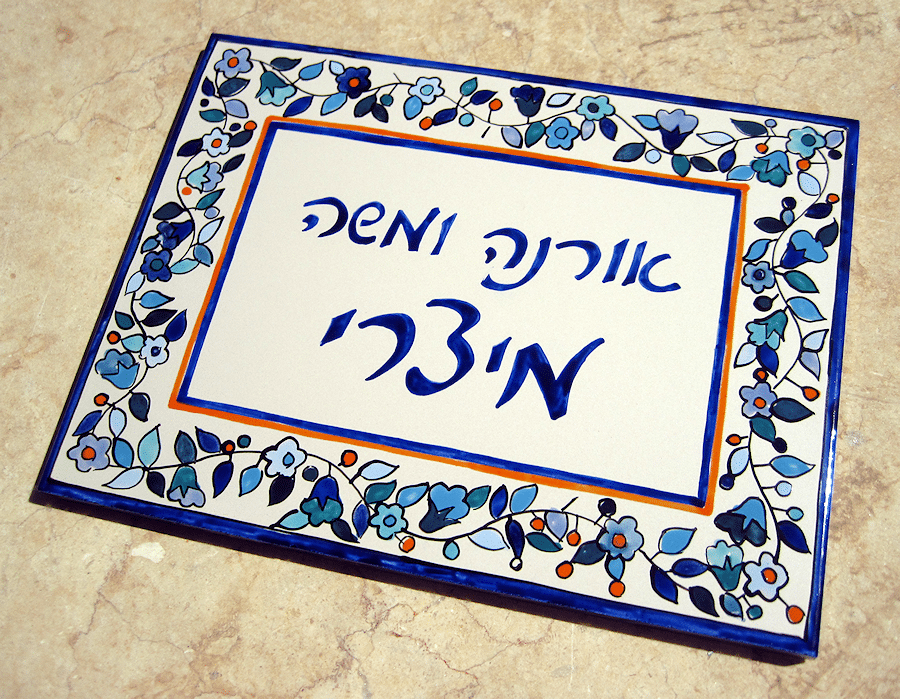 אורנה ומשה
מיצרי